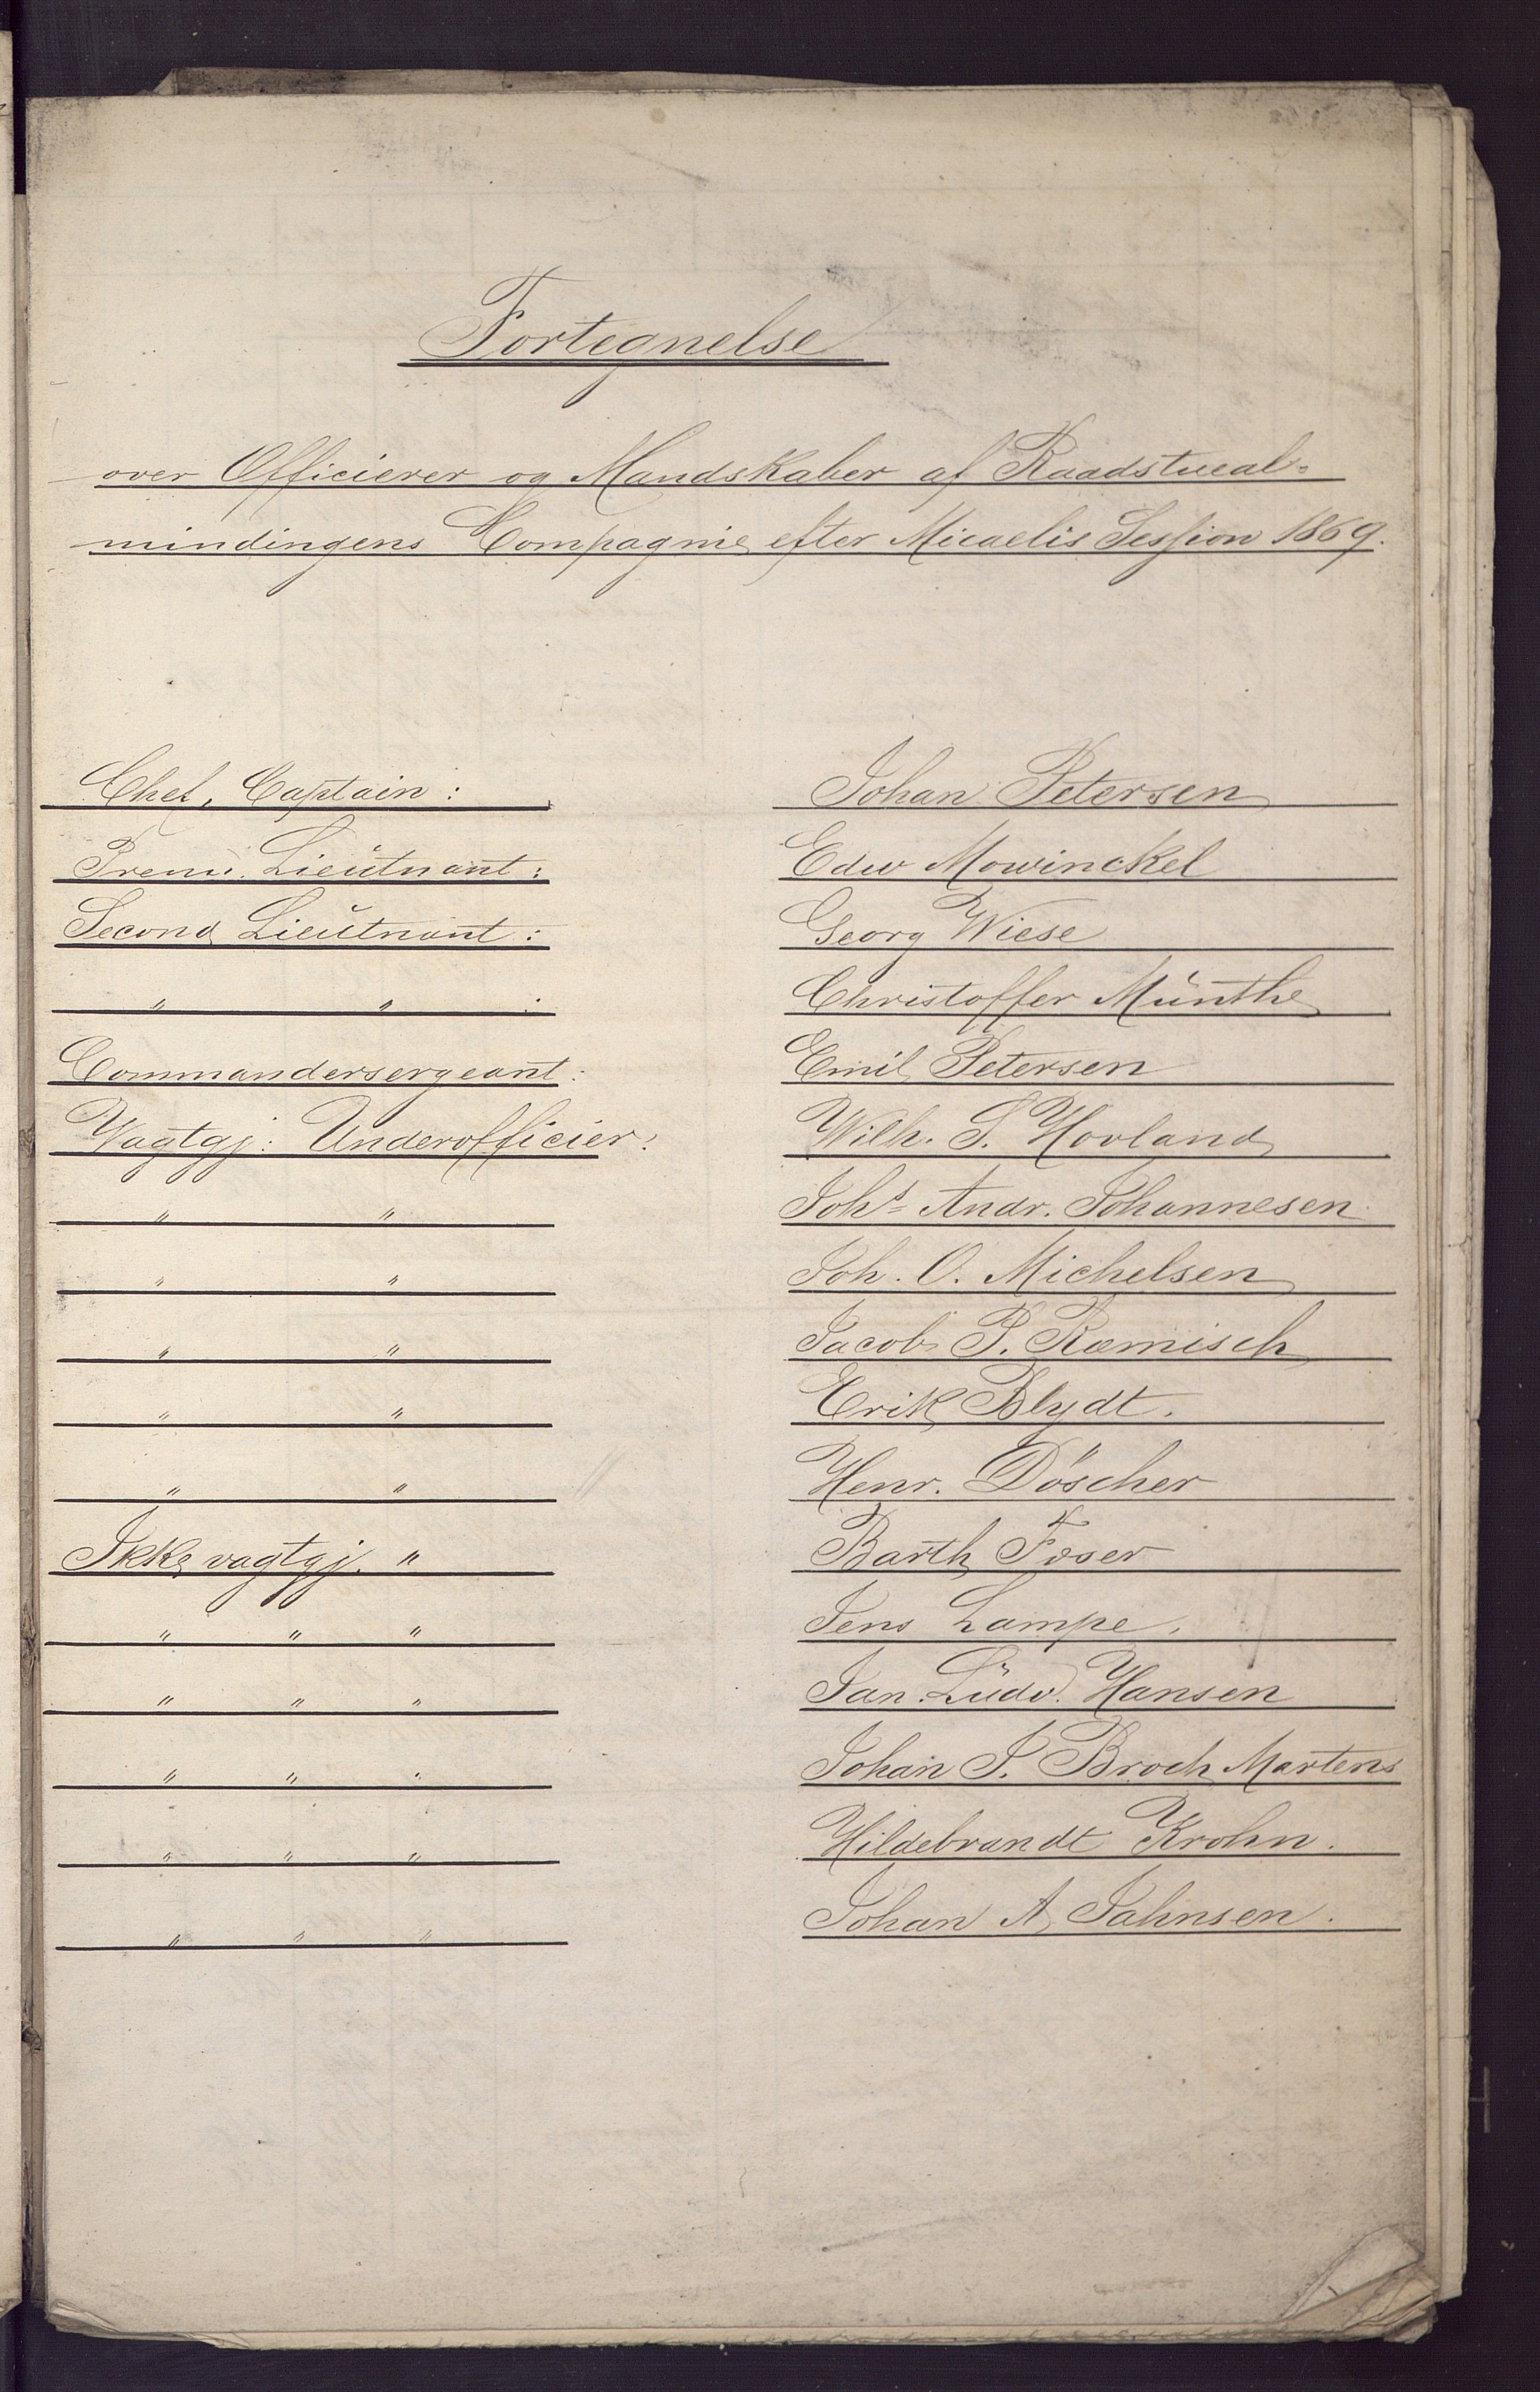 Fortegnelse
over Officierer og Mandskaber af Raadstueal-
mindingens Compagnie efter Micaelis Session 1869.
Chef, Captain: Johan Petersen
Premi. Lieutnant: Edw Mowinckel
Second Lieutnant: Georg Wiese
" " : Christoffer Münthe
Commandersergeant: Emil Petersen
Vagtgj: Underofficier: Wilh. S. Hovland
" " Johs Andr. Johannesen
" " Joh. O. Michelsen
" " Jacob P. Ræmisch
" " Erik Blydt.
" " Henr. Döscher
Ikke vagtgj. " Barth Føser
" " " Jens Lampe.
" " " Jan. Lüdv. Hansen
" " " Johan J. Broch Martens
" " " Hildebrandt Krohn.
" " " Johan A Jahnsen.